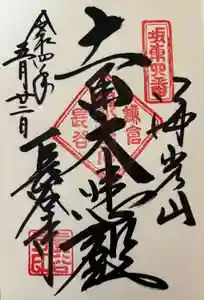 坂東四番
海光山
十一面大悲殿
鎌倉
長谷
令和四年
五月廿二日
長谷寺